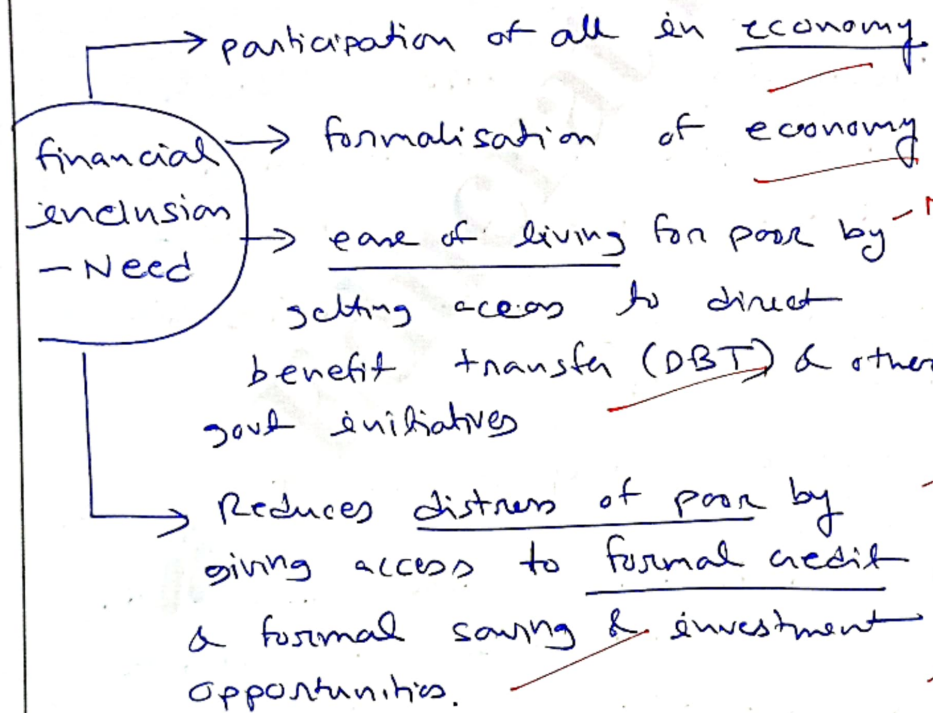 participation of all in economy.
formalisation of economy
financial
inclusion
- Need
ease of living for poor by
getting access to direct
benefit transfer (DBT) & other
govt initiatives
Reduces distress of poor by
giving access to formal credit
& formal saving & investment
opportunities.